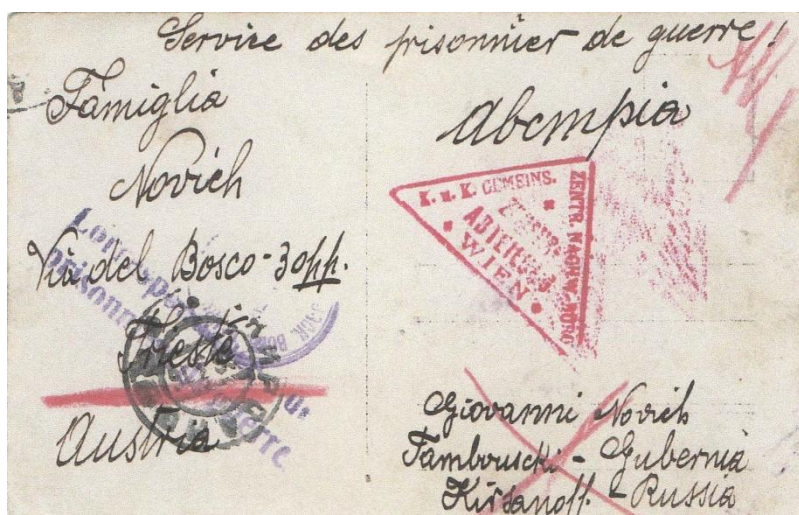 Service des prisonnier de guerre!
Famiglia
Novich
Via del Bosco-30pp.
Trieste
Austria
Abempia
K. u. K. GEMEINS.
ZENTR. NACHW. BURO
WIEN
Giovanni Novich
Tambouscki - Gubernia
Kirsanoff. - Russia